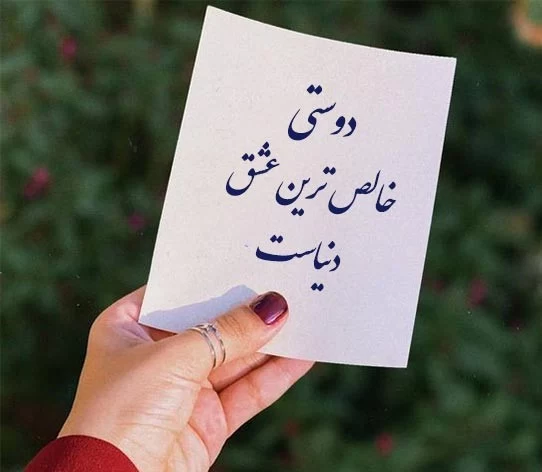 دوستی
خالص ترین عشق
دنیاست